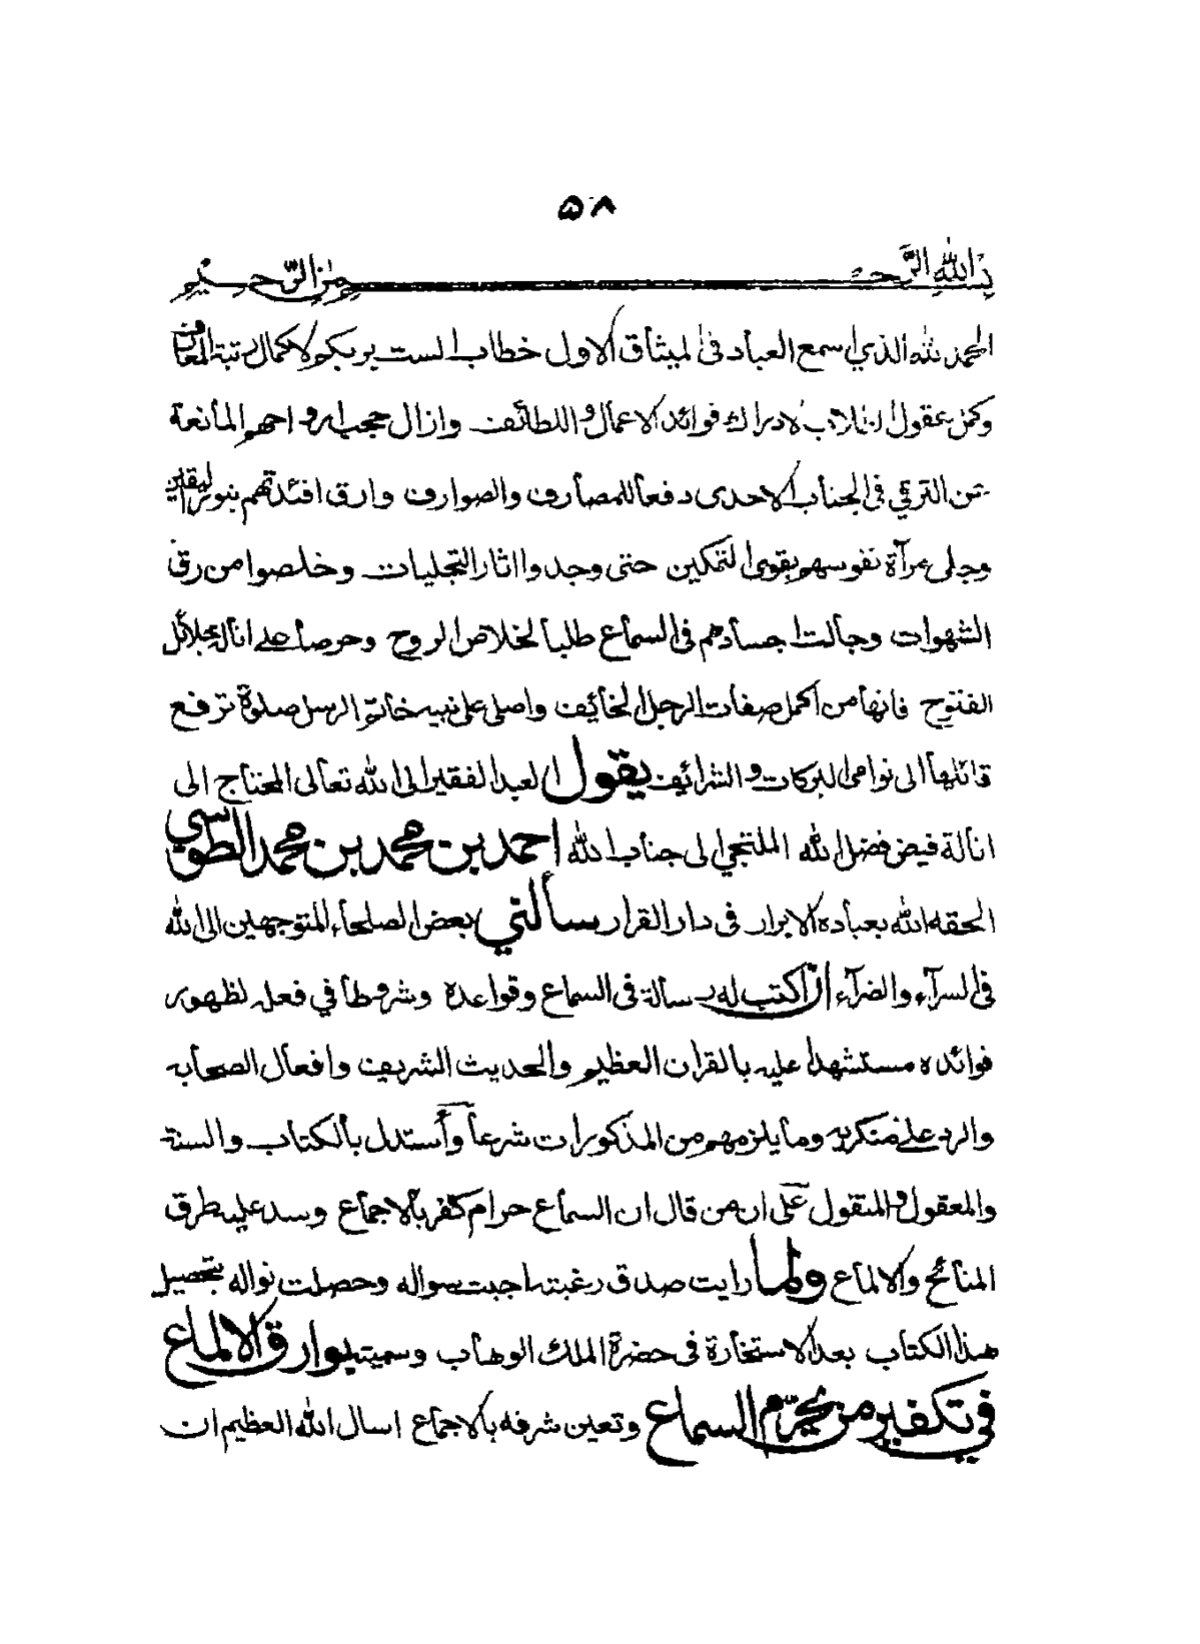 ٥٨
بسم الله الرحمن الرحيم
الحمد لله الذي اسمع العباد فى الميثاق الاول خطاب الست بربكم لاكمال رتبة المعارف
وكمل عقول لادراك فوائد الاعمال و اللطائف وازال حجب ارواحهم المانعة
عن الترقي فى الجناب الاحدى دفعا للمصارف والصوارف وارق افئدتهم بنور اليقين
وجلى مرآة نفوسهم بقوى التمكين حتى وجدوا اثار التجليات وخلصوا من رق
الشهوات وجالت اجسادهم فى السماع طلبا لخلاص الروح وحرصا على انالة جلائل
الفتوح فانها من اكمل صفات الرجل الخائف واصلى على نبيه خاتم الرسل صلوة ترفع
قائلها الى نوامى البركات و الشرائف يقول العبد الفقير الى الله تعالى المحتاج الى
انالة فيض فضل الله الملتجي الى جناب الله احمد بن محمد بن محمد الطوسي
الحقه الله بعباده الابرار فى دار القرار سألني بعض الصلحاء المتوجهين الى الله
فى السرآء والضرآء ان اكتب له رسالة فى السماع وقواعده وشروطا في فعله لظهور
فوائده مستشهدا عليه بالقران العظيم والحديث الشريف وافعال الصحابه
والرد على منكريه وما يلزمهم من المذكورات شرعا وأستدل بالكتاب والسنة
والمعقول والمنقول على ان من قال ان السماع حرام كفر بالاجماع وسد عليه طرق
المنائح والالماع ولما رايت صدق رغبته اجبت سواله وحصلت نواله بتحصيل
هذا الكتاب بعد الاستخارة فى حضرة الملك الوهاب وسميته بوارق الالماع
في تكفير من يحرّم السماع وتعين شرفه بالاجماع اسال الله العظيم ان